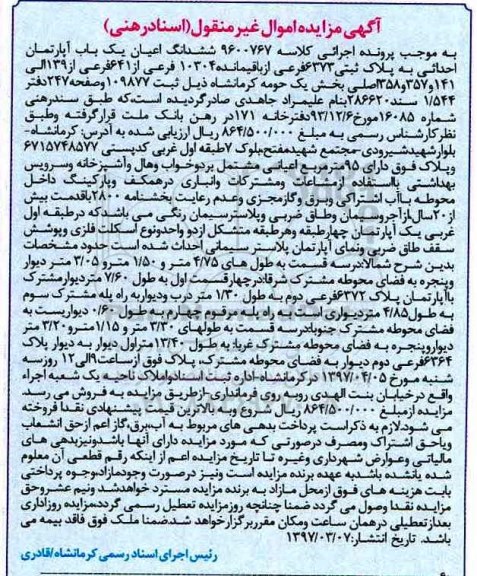 آگهی مزایده اموال غیر منقول (اسناد رهنی)
به موجب پرونده اجرائی کلاسه ۹۶۰۰۷۶۷ ششدانگ اعیان یک باب آپارتمان
احداثی به پلاک ثبتی ۶۳۷۳فرعی ازباقیمانده۱۰۳۰۴ فرعی از۶۴۱فرعی از۱۳۹الی
۱۴۱و۳۵۷و۳۵۸اصلی بخش یک حومه کرمانشاه ذیل ثبت ۱۰۹۸۷۷وصفحه۲۴۷دفتر
۱/۵۴۴ سند۲۸۶۶۲۰بنام علیمراد جاهدی صادرگردیده است،که طبق سندرهنی
شماره ۱۶۰۸۵مورخ۹۳/۱۲/۶دفترخانه ۱۷۱در رهن بانک ملت قرارگرفته وطبق
نظرکارشناس رسمی به مبلغ ۸۶۴/۵۰۰/۰۰۰ ریال ارزیابی شده به آدرس: کرمانشاه-
بلوارشهیدشیرودی-مجتمع شهیدمفتح،بلوک ۷طبقه اول غربی کدپستی ۶۷۱۵۷۴۸۵۷۷
وپلاک فوق دارای ۹۵مترمربع اعیانی مشتمل بردوخواب وهال وآشپزخانه وسرویس
بهداشتی بااستفاده ازمشاعات ومشترکات وانباری درهمکف وپارکینگ داخل
محوطه باآب اشتراکی وبرق وگازمجزی وعدم رعایت بخشنامه ۲۸۰۰باقدمت بیش
از۲۰سال،ازآجروسیمان وطاق ضربی وپلاسترسیمان رنگی می باشدکه درطبقه اول
غربی یک آپارتمان چهارطبقه وهرطبقه متشکل ازدو واحدونوع اسکلت فلزی وپوشش
سقف طاق ضربی ونمای آپارتمان پلاستر سیمانی احداث شده است حدود مشخصات
بدین شرح شمالا:درسه قسمت به طول های ۴/۷۵ متر و ۱/۵۰ مترو ۳/۰۵ متر دیوار
وپنجره به فضای محوطه مشترک شرقا:درچهارقسمت اول به طول ۷/۶۰ متردیوارمشترک
باآپارتمان پلاک ۶۳۷۲فرعی دوم به طول ۱/۳۰ متر درب ودیواربه راه پله مشترک سوم
به طول۴/۸۵ متردیواری است به راه پله مرقوم چهارم به طول ۰/۶۰ دیواریست به
فضای محوطه مشترک جنوبا:درسه قسمت به طولهای ۳/۳۰ متر و ۱/۱۵مترو ۳/۲۰ متر
دیواروپنجره به فضای محوطه مشترک غربا: به طول ۱۳/۴۰متراول دیوار به دیوار پلاک
۶۳۶۴فرعی دوم دیوار به فضای محوطه مشترک، پلاک فوق ازساعت۹الی۱۲ روزسه
شنبه مورخ ۱۳۹۷/۰۴/۰۵ درکرمانشاه-اداره ثبت اسنادواملاک ناحیه یک شعبه اجراء
واقع درخیابان بنت الهدی روبه روی فرمانداری-ازطریق مزایده به فروش می رسد.
مزایده ازمبلغ ۸۶۴/۵۰۰/۰۰۰ ریال شروع وبه بالاترین قیمت پیشنهادی نقدا فروخته
می شود،لازم به ذکراست پرداخت بدهی های مربوط به آب،برق،گاز اعم ازحق انشعاب
ویاحق اشتراک ومصرف درصورتی که مورد مزایده دارای آنها باشدونیزبدهی های
مالیاتی وعوارض شهرداری وغیره تا تاریخ مزایده اعم از اینکه رقم قطعی آن معلوم
شده یانشده باشدبه عهده برنده مزایده است ونیز درصورت وجودمازاد،وجوه پرداختی
بابت هزینه های فوق ازمحل مازاد به برنده مزایده مسترد خواهدشد ونیم عشروحق
مزایده نقدا وصول می گردد ضمنا چنانچه روزمزایده تعطیل رسمی گرددمزایده روزاداری
بعدازتعطیلی درهمان ساعت ومکان مقرربرگزارخواهد شدضمنا ملک فوق فاقد بیمه می
باشد. تاریخ انتشار:۱۳۹۷/۰۳/۰۷
رئیس اجرای اسناد رسمی کرمانشاه/قادری